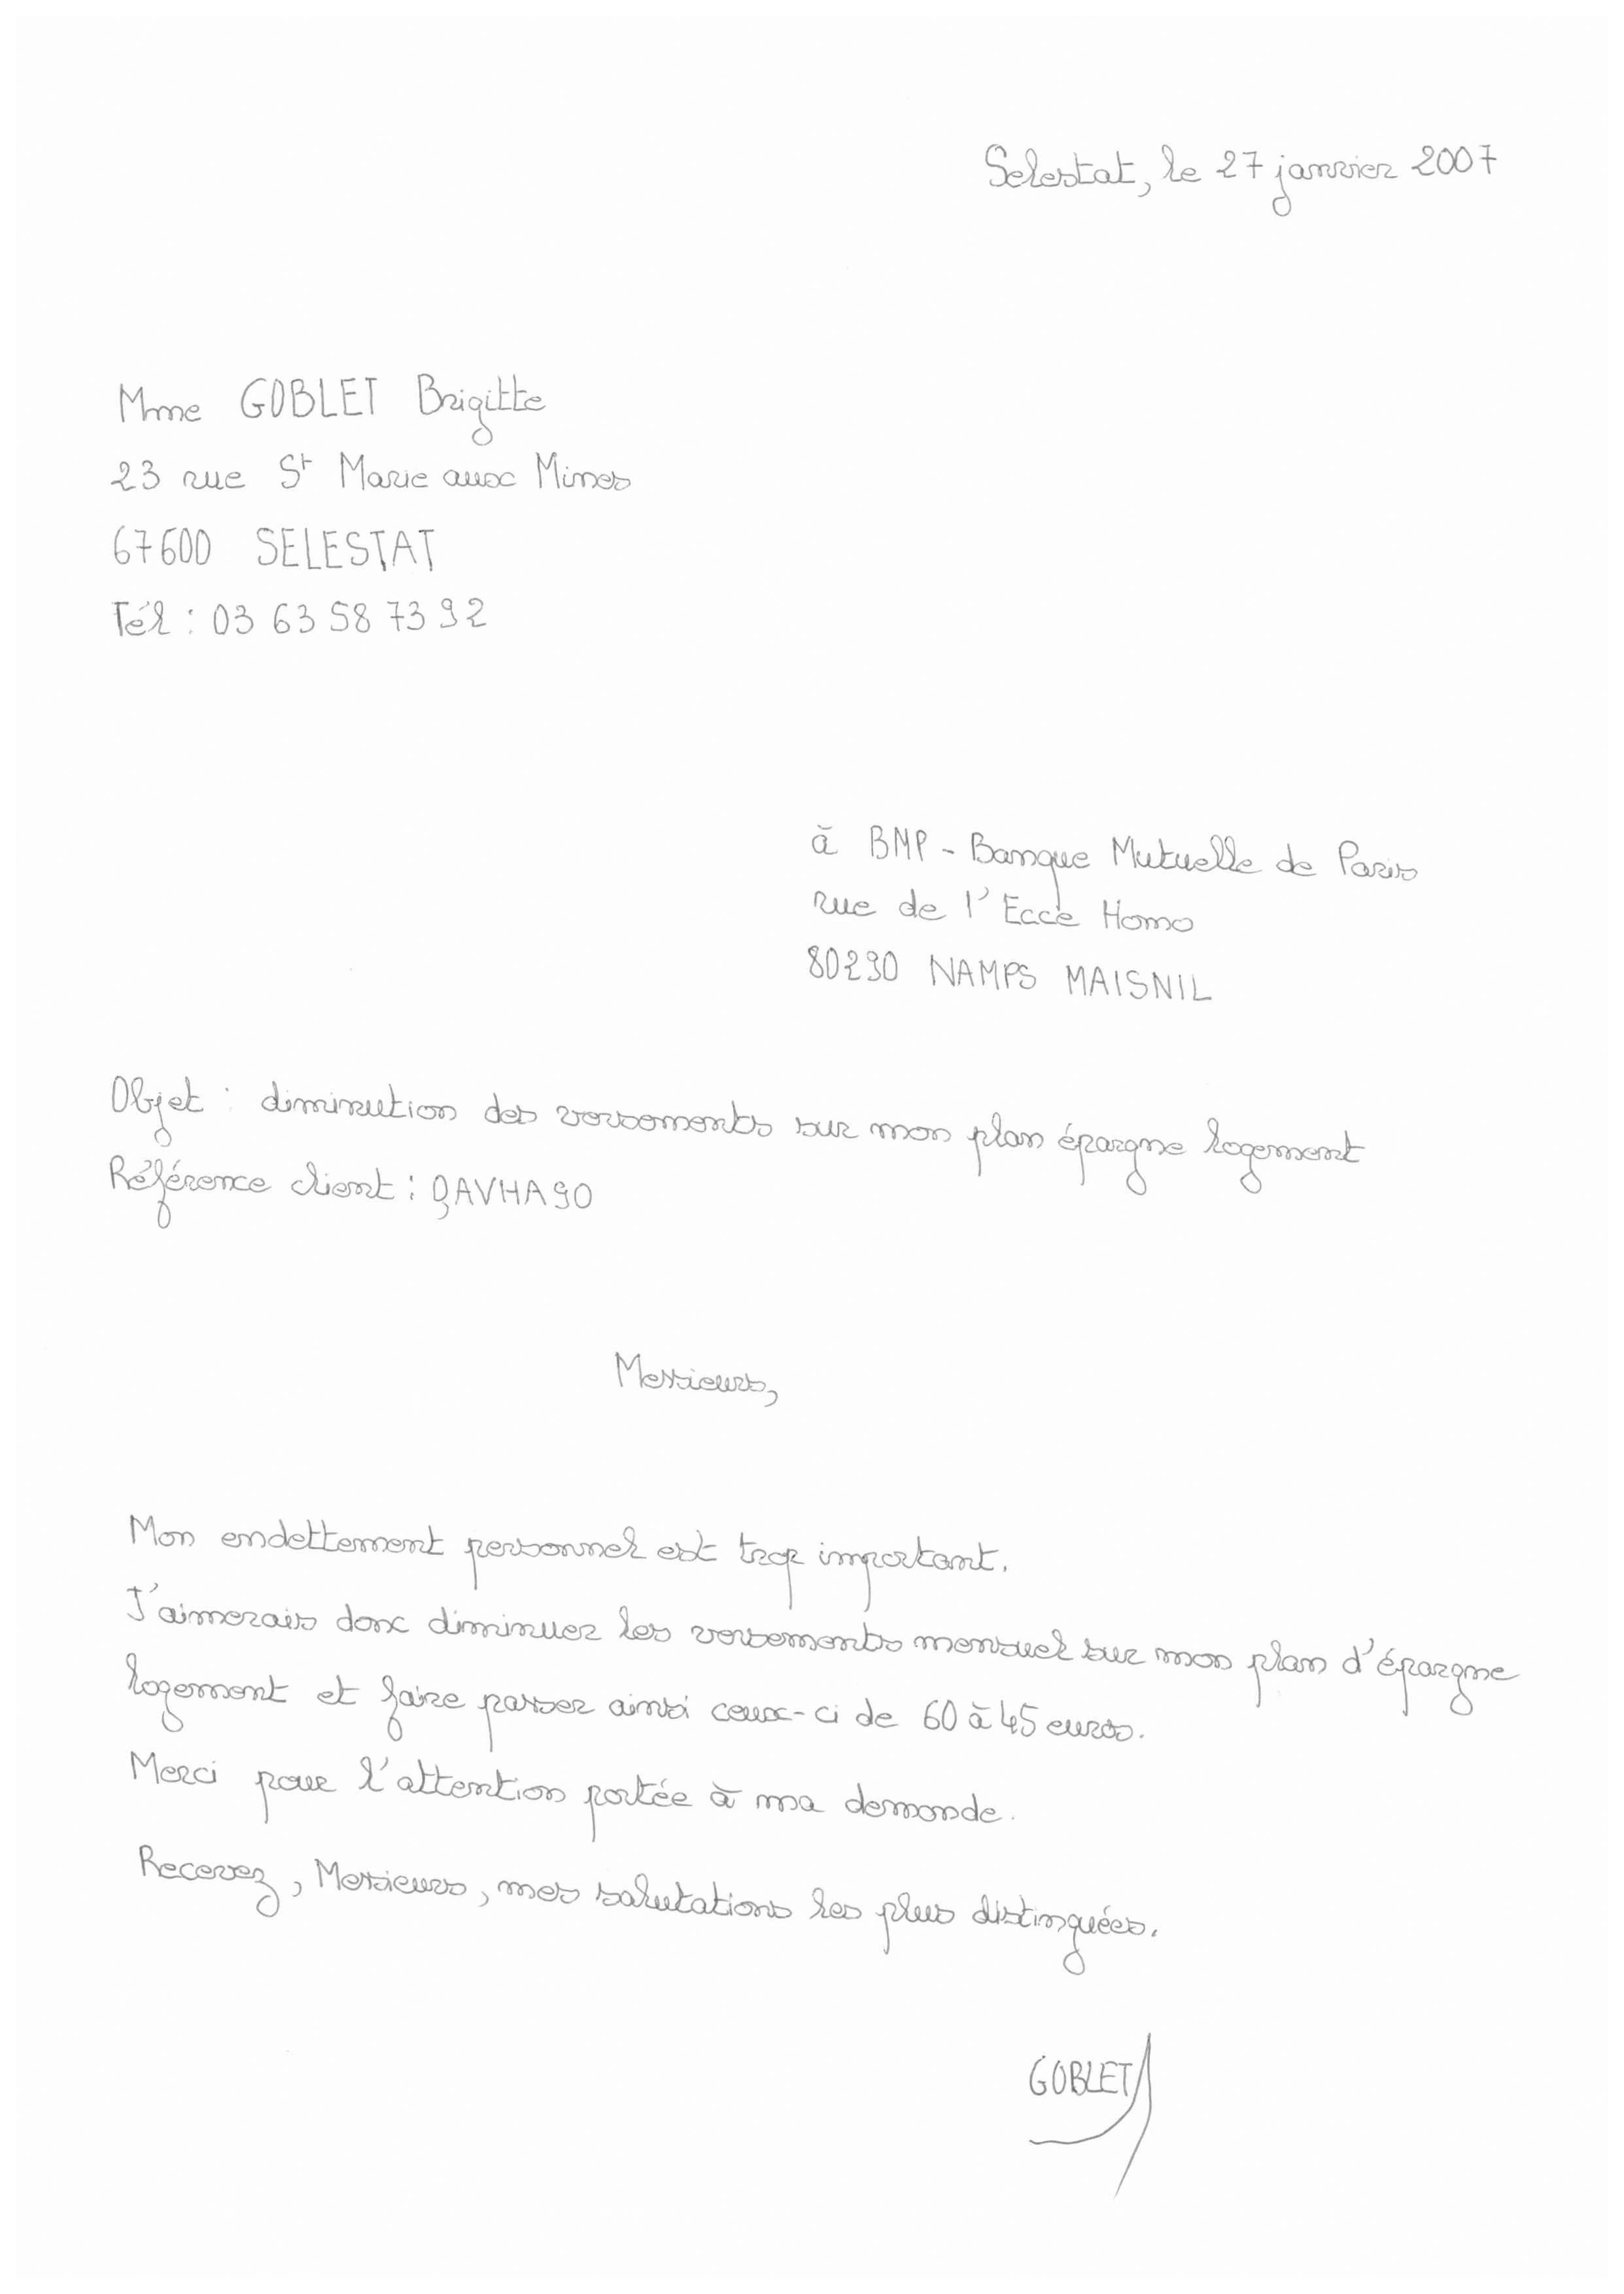 Selestat, le 27 janvier 2007
Mme GOBLET Brigitte
23 rue St Marie aux Mines
67600 SELESTAT
Tél : 03 63 58 73 92
à BMP - Banque Mutuelle de Paris
rue de l'Ecce Homo
80290 NAMPS MAISNIL
Objet : diminution des versements sur mon plan épargne logement
Référence client : QAVHA90
Messieurs,
Mon endettement personnel est trop important.
J'aimerais donc diminuer les versements mensuel sur mon plan d'épargne
logement et faire passer ainsi ceux-ci de 60 à 45 euros.
Merci pour l'attention portée à ma demande.
Recevez, Messieurs, mes salutations les plus distinguées.
GOBLET